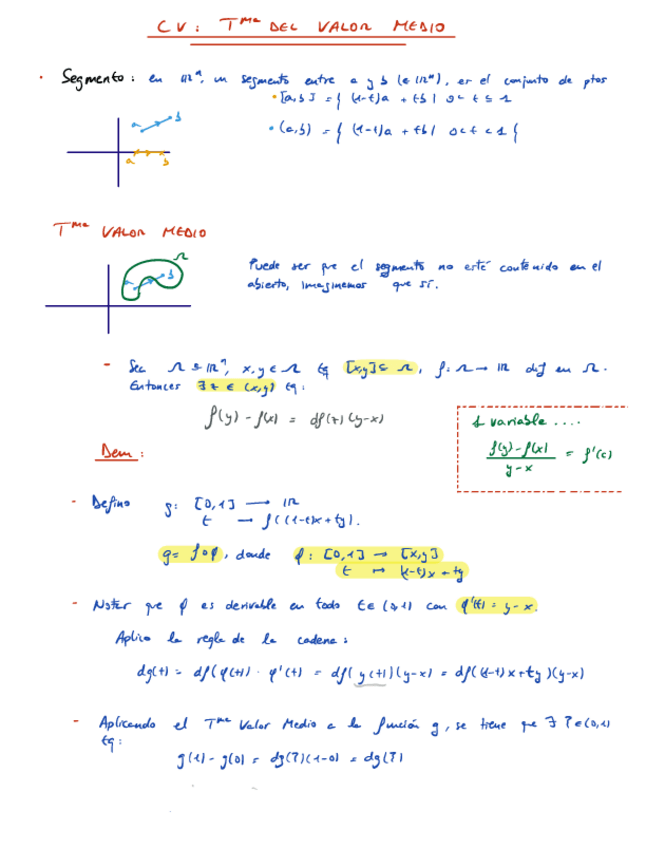 CV: Tma DEL VALOR MEDIO
• Segmento: en ℝⁿ, un segmento entre a y b (∈ ℝⁿ), es el conjunto de ptos
• [a,b] = { (1-t)a + tb | 0 ≤ t ≤ 1
• (a,b) = { (1-t)a + tb | 0 < t < 1 {
a b
a b
Tma VALOR MEDIO
Ω
a b
Puede ser que el segmento no esté contenido en el
abierto, imaginemos que sí.
- Sea Ω ⊆ ℝⁿ, x, y ∈ Ω tq [x,y] ⊆ Ω, f: Ω → ℝ dif en Ω.
Entonces ∃ z ∈ (x,y) tq:
f(y) - f(x) = df(z)(y-x)
1 variable ....
f(y)-f(x) / y-x = f'(c)
Dem:
- Defino g: [0,1] → ℝ
t → f((1-t)x + ty).
g = f∘φ, donde φ: [0,1] → [x,y]
t ↦ (1-t)x + ty
- Notar que φ es derivable en todo t ∈ (0,1) con φ'(t) = y-x.
Aplico la regla de la cadena:
dg(t) = df(φ(t)) · φ'(t) = df(φ(t))(y-x) = df((1-t)x + ty)(y-x)
- Aplicando el Tma Valor Medio a la función g, se tiene que ∃ ∈ (0,1)
tq:
g(1) - g(0) = dg( )(1-0) = dg( )